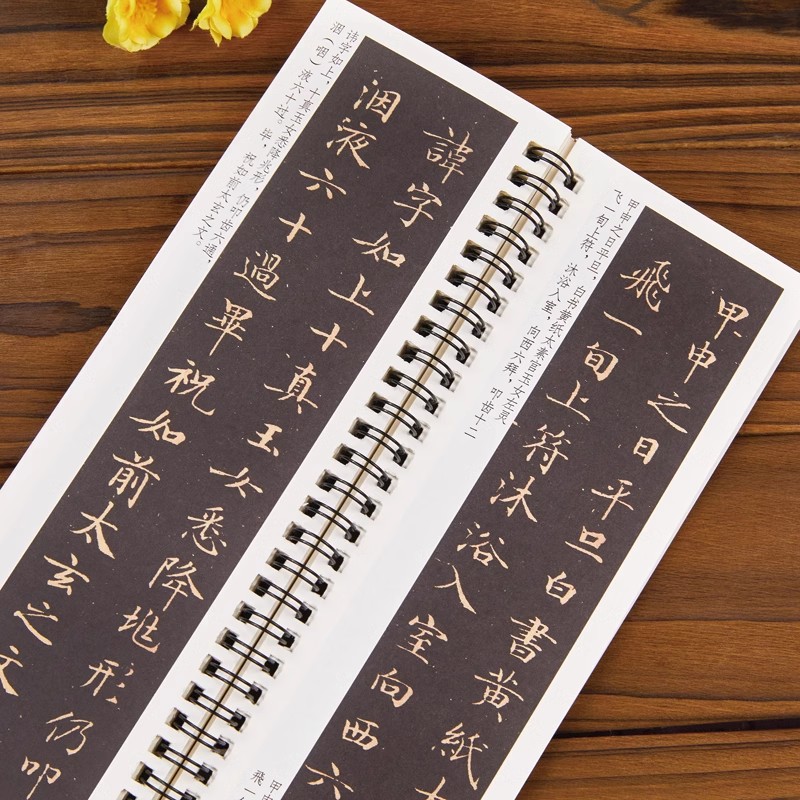 甲申之日平旦白書黃紙
飛一旬上符沐浴入室向西六
甲申之日平旦，白书黄纸太素宫玉女左灵
飞一旬上符，沐浴入室，向西六拜，叩齿十二
甲申
飛一
諱字如上十真玉女悉降垗形仍叩
洇液六十過畢祝如前太玄之文
讳字如上，十真玉女悉降兆形，仍叩齿六通，
洇（咽）液六十过。毕，祝如前太玄之文。